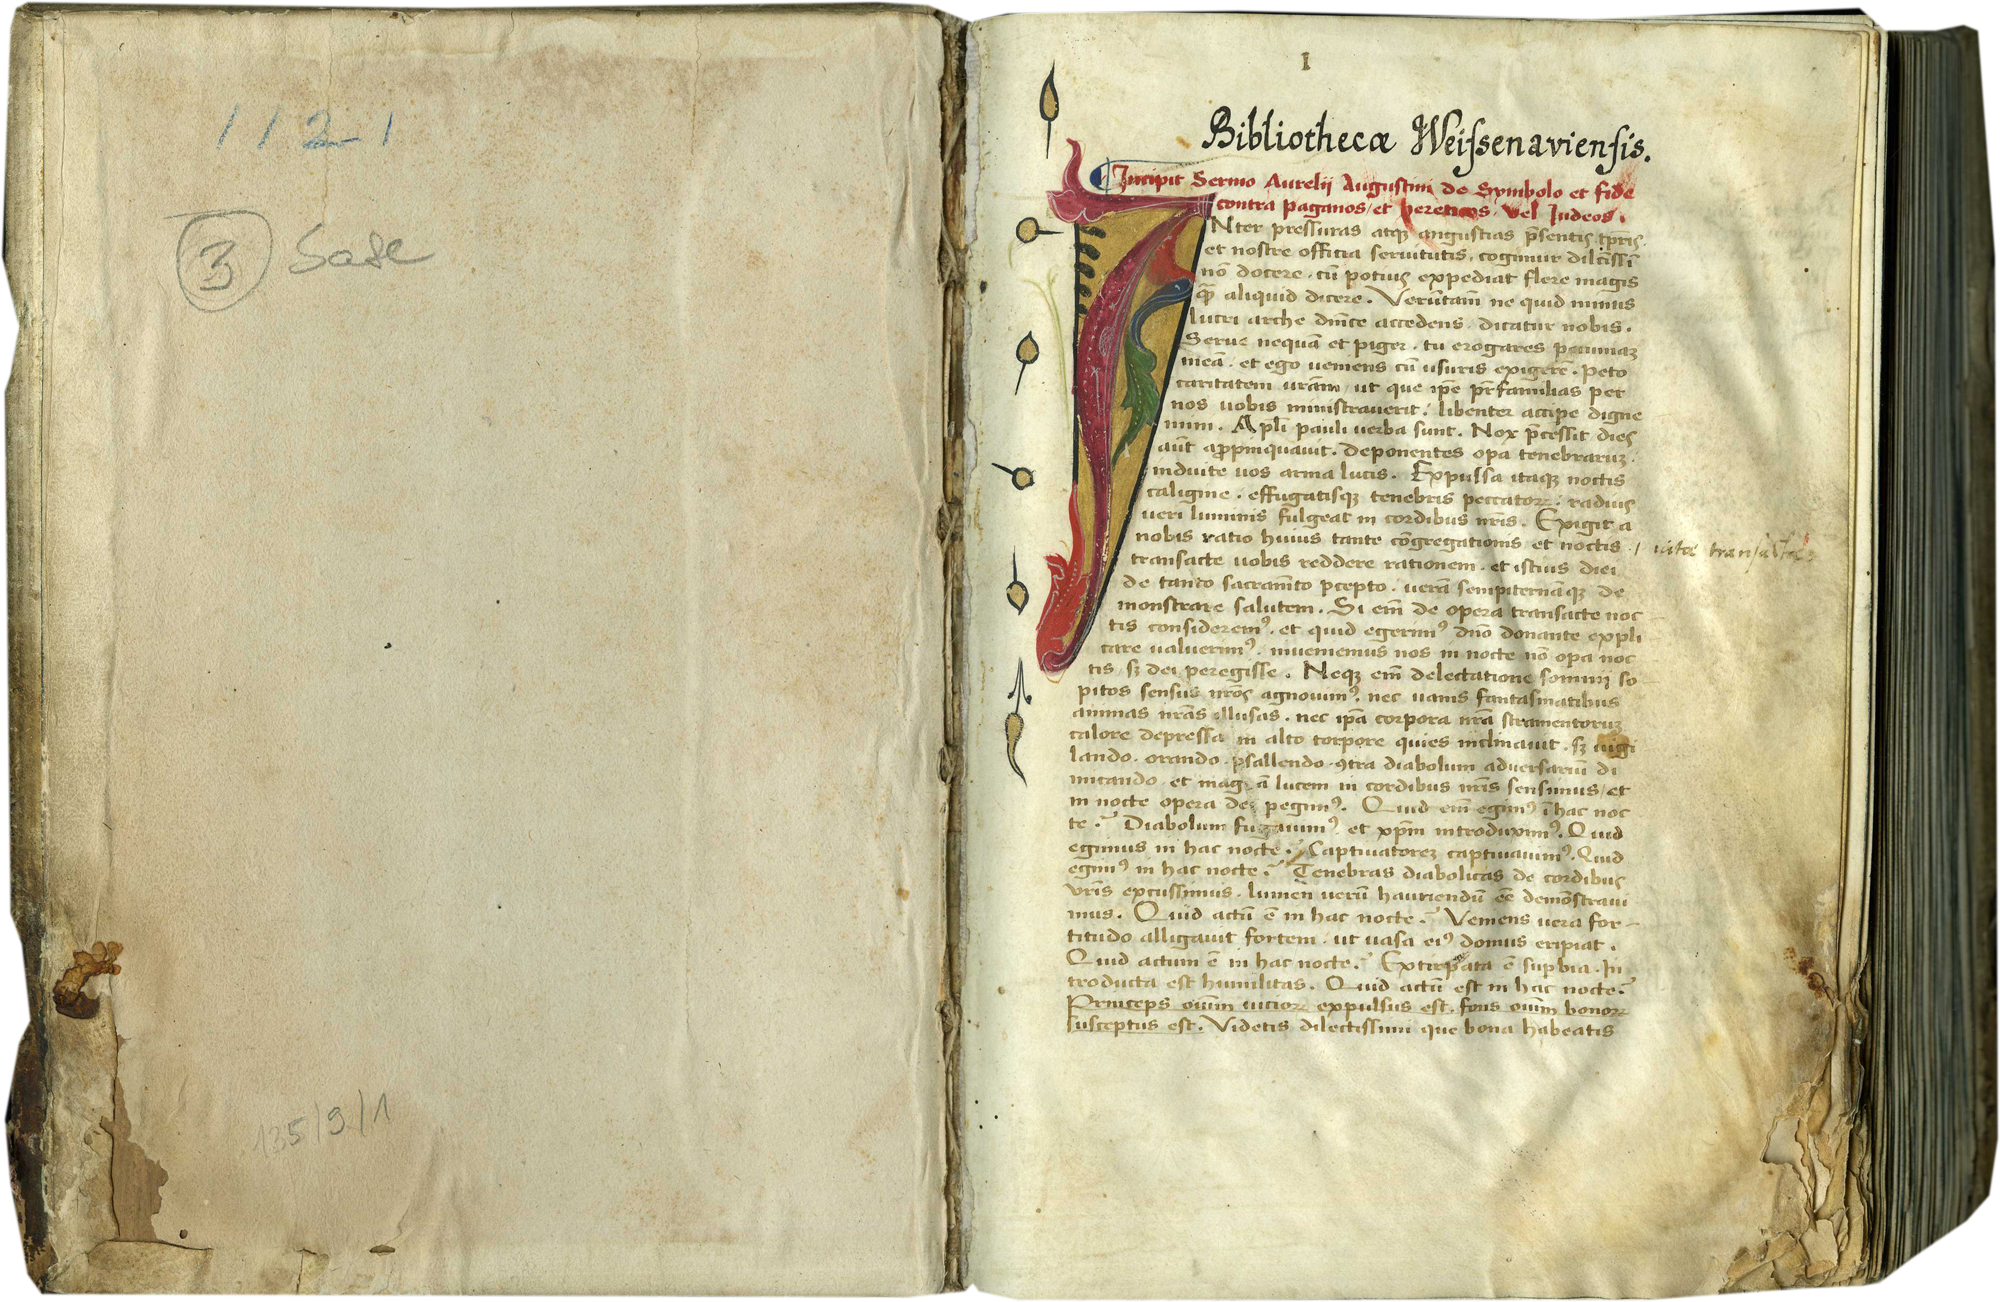 1121
3 Sase
135/9/1
I
Bibliothecæ Weiſsenavienſis.
Incipit Sermo Aurelij Augustini de Symbolo et fide
contra paganos, et hereticos, vel Judeos.
Nter pressuras atqꝫ angustias p̄sentis tp̄ris
et nostre officia seruitutis, cogimur dilc̄issī
nō docere, cū potius expediat flere magis
quā aliquid dicere. Verūtam̄ ne quid minus
lucri arche dn̄ice accedens, dicatur nobis.
Serue nequā et piger, tu erogares pecuniaꝫ
meā, et ego ueniens cū usuris exigerē. Peto
caritatem urām, ut que ip̄e pr̄familias per
nos uobis ministrauerit, libenter accipe digne
mini. Apl̄i pauli uerba sunt. Nox p̄cessit dies
aūt appinquauit. deponentes opa tenebraruꝫ
induite uos arma lucis. Expulsa itaqꝫ noctis
caligine, effugatisqꝫ tenebris peccatoꝝ, radius
ueri luminis fulgeat in cordibus nr̄is. Exigit a
nobis ratio huius tante cōgregationis et noctis
transacte uobis reddere rationem, et istius diei
de tanto sacram̄to p̄cepto, uerā sempiternāqꝫ de
monstrare salutem. Si em̄ de opera transacte noc
tis consideremꝰ, et quid egerimꝰ dn̄o donante expli
care ualuerimꝰ, inueniemus nos in nocte nō opa noc
tis, sꝫ dei peregisse. Neqꝫ em̄ delectatione somni so
pitos sensus nr̄os agnouimꝰ, nec uanis fantasmatibus
animas nr̄as illusas, nec ip̄a corpora nr̄a stramentoruꝫ
calore depressa in alto torpore quies inclinauit, sꝫ uigi
lando, orando, psallendo, ꝯtra diabolum aduersariū di
micando, et mag ā lucem in cordibus nr̄is sensimus, et
in nocte opera dei pegimꝰ. Quid em̄ egimꝰ ī hac noc
te? Diabolum fugauimꝰ, et xp̄m introduximꝰ. Quid
egimus in hac nocte? Captiuatoreꝫ captiuauimꝰ. Quid
egimꝰ in hac nocte? Tenebras diabolicas de cordibus
vr̄is excussimus, lumen uerū hauriendū eē demōstraui
mus. Quid actū ē in hac nocte? Veniens uera for-
titudo alligauit fortem, ut uasa eiꝰ domus eripiat.
Quid actum ē in hac nocte? Extirpata ē supbia. In
troducta est humilitas. Quid actū est in hac nocte?
Princeps oīm uicioꝝ expulsus est, fons oīm bonoꝝ
susceptus est. Videtis dilectissimi que bona habeatis